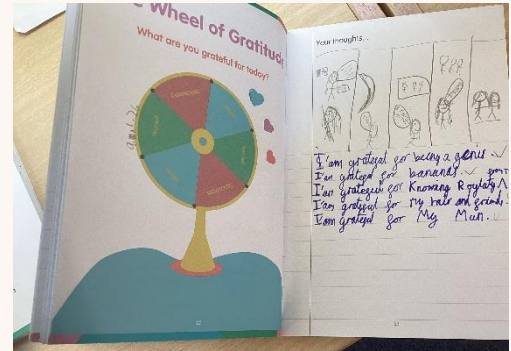 Wheel of Gratitude
What are you grateful for today?
Your thoughts...
I'am grateful for being a genis.
I'an grateful for bananas.
I'an grateful for Knowing Roylaty
I'am grateful for my hair and friends
I'am grateful for My Mum.